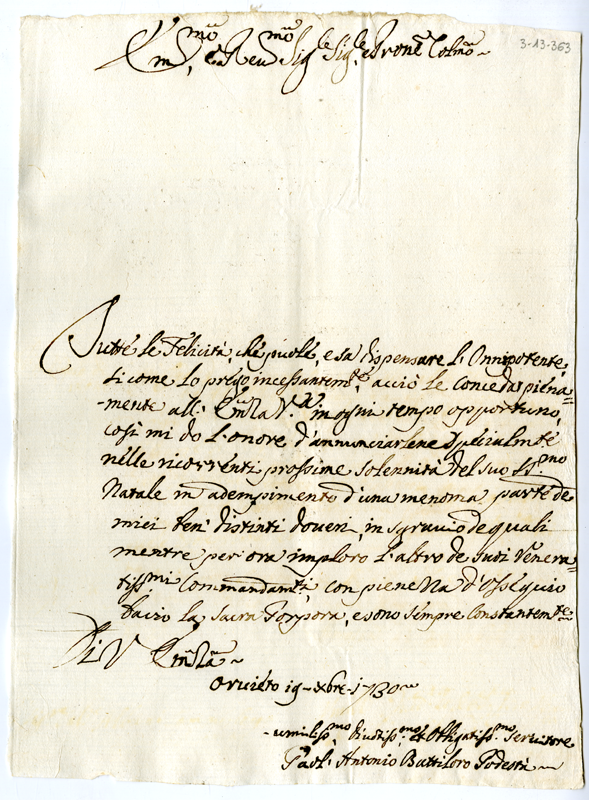 3-13-363
Em.mo, e Reu.mo Sig.re Sig.re e Prone Colmo
Tutte le Felicità, che puole, e sa dispensare l'Onnipotente,
si come lo prego incessantem.te, acciò le conceda piena=
-mente all' Em.za V.ra in ogni tempo opportuno,
così mi do l'onore d'annunciarlene specialmte
nelle ricorrenti prossime solennità del suo SS.mo
Natale in adempimento d'una menoma parte de
miei ben distinti doueri, in sgrauio de quali
mentre per ora imploro l'altro de suoi Venera=
tissmi Commandamti, con pienezza d'Ossequio
bacio la Sacra Porpora, e sono sempre constantemte
Di V Em.za
Oruieto 19 Xbre 1730
-umiliss.mo Diuotiss.mo et Obligatiss.mo Seruitore
Paol' Antonio Battiloro Podestà